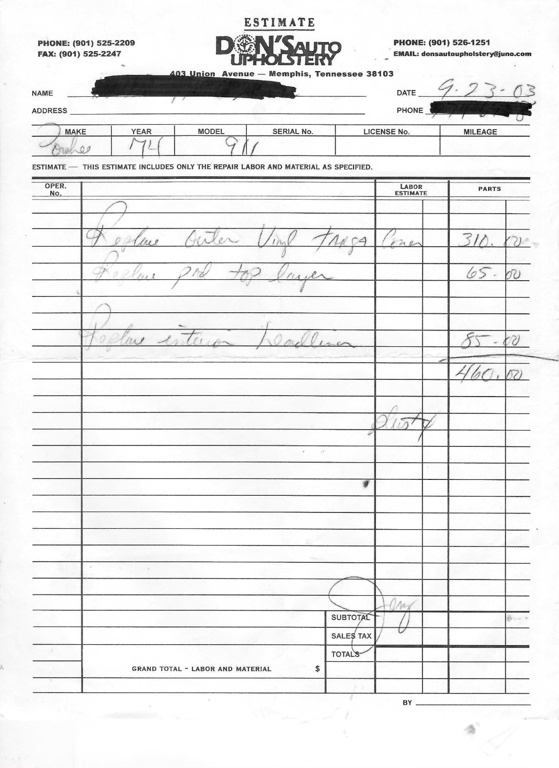 ESTIMATE
PHONE: (901) 525-2209
FAX: (901) 525-2247
DON'S AUTO
UPHOLSTERY
PHONE: (901) 526-1251
EMAIL: donsautoupholstery@juno.com
403 Union Avenue — Memphis, Tennessee 38103
NAME
DATE 9-23-03
ADDRESS
PHONE
MAKE YEAR MODEL SERIAL No. LICENSE No. MILEAGE
Porshe 74 911
ESTIMATE — THIS ESTIMATE INCLUDES ONLY THE REPAIR LABOR AND MATERIAL AS SPECIFIED.
OPER. No. LABOR ESTIMATE PARTS
Replace outer Vinyl targa Cover 310.00
Replace pad top layer 65.00
Replace interior headliner 85.00
460.00
SUBTOTAL
SALES TAX
TOTALS
GRAND TOTAL - LABOR AND MATERIAL $
BY